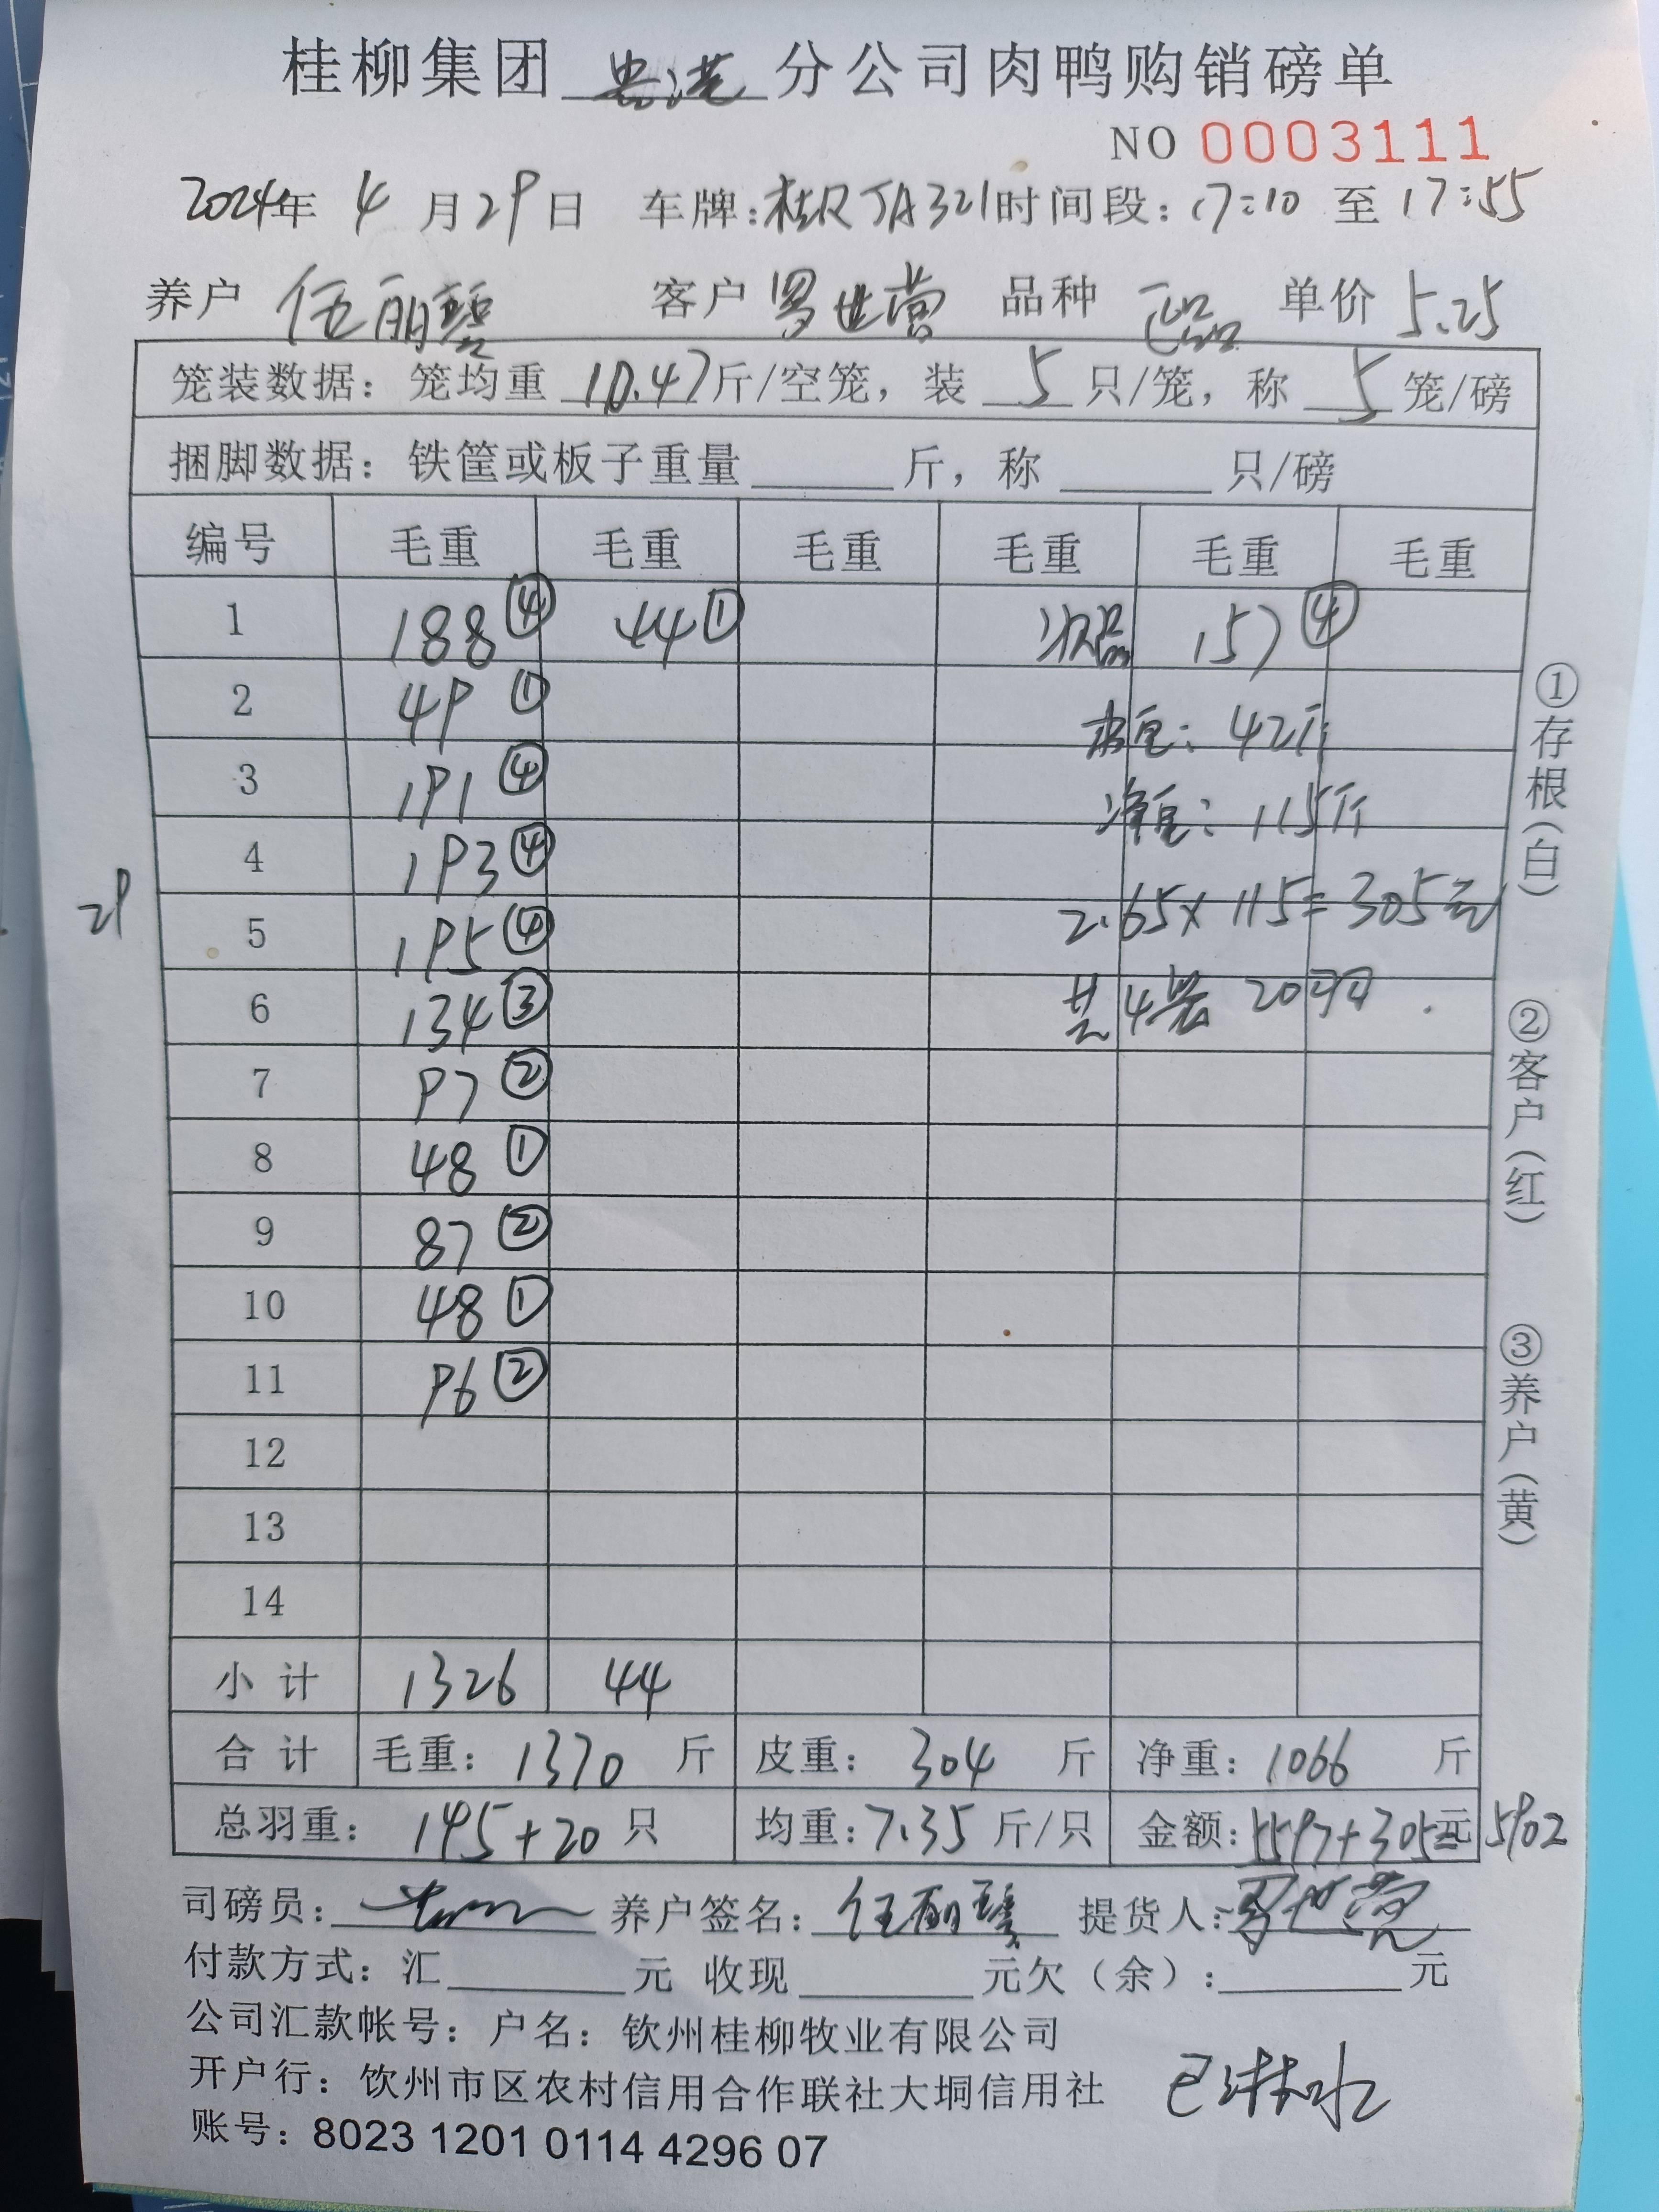 桂柳集团 贵港 分公司肉鸭购销磅单
NO 0003111
2024年 4 月 29 日 车牌:桂RJA321 时间段: 17:10 至 17:55
养户 伍丽 客户 罗世营 品种 正品 单价 5.25
笼装数据: 笼均重 10.47 斤/空笼, 装 5 只/笼, 称 5 笼/磅
捆脚数据: 铁筐或板子重量 斤, 称 只/磅
编号 毛重 毛重 毛重 毛重 毛重 毛重
1 188 ④ 44 ① 次品 157 ④
2 49 ① 皮重: 42斤
3 191 ④ 净重: 115斤
4 193 ④
29
5 195 ④ 2.65×115=305元
6 134 ③ 共4笼 20羽.
7 97 ②
8 48 ①
9 87 ②
10 48 ①
11 96 ②
12
13
14
小计 1326 44
合计 毛重: 1370 斤 皮重: 304 斤 净重: 1066 斤
总羽重: 145+20 只 均重: 7.35 斤/只 金额: 5597+305= 元 5902
司磅员: 养户签名: 伍丽 提货人: 罗世营
付款方式: 汇 元 收现 元欠(余): 元
公司汇款帐号: 户名: 钦州桂柳牧业有限公司
开户行: 钦州市区农村信用合作联社大垌信用社
已淋水
账号: 8023 1201 0114 4296 07
①存根(白)
②客户(红)
③养户(黄)